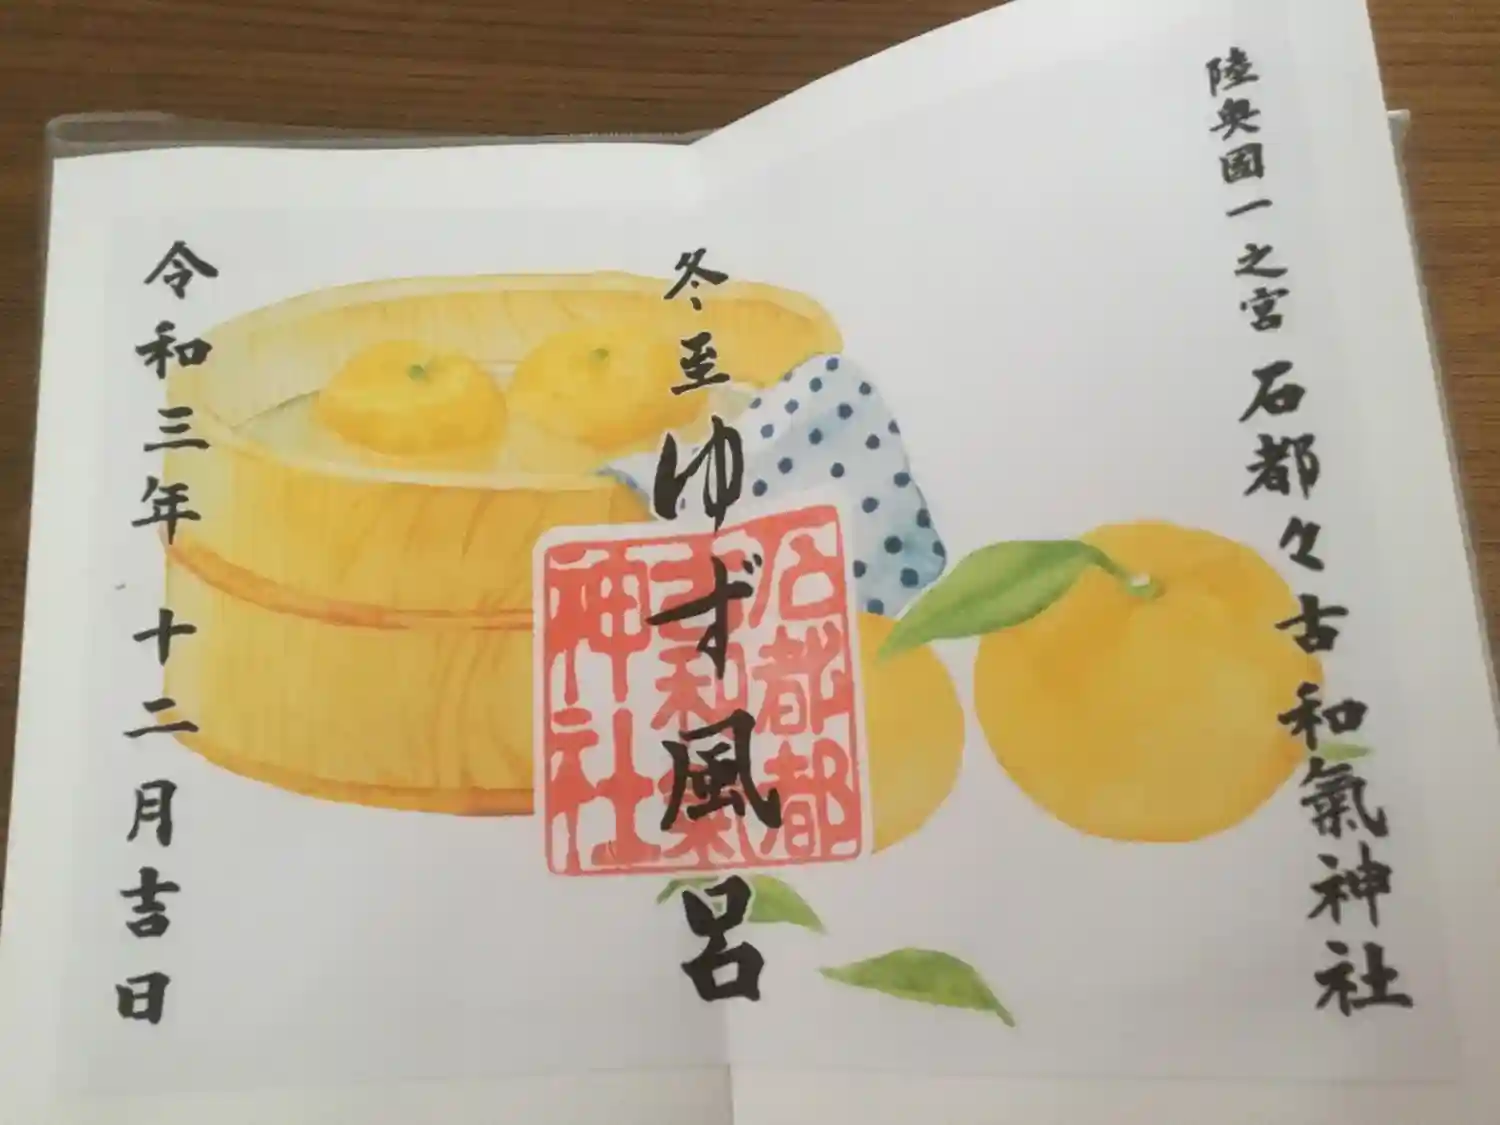 陸奥國一之宮 石都々古和氣神社
冬至 ゆず風呂
石都都
古和氣
神社
令和三年 十二月吉日